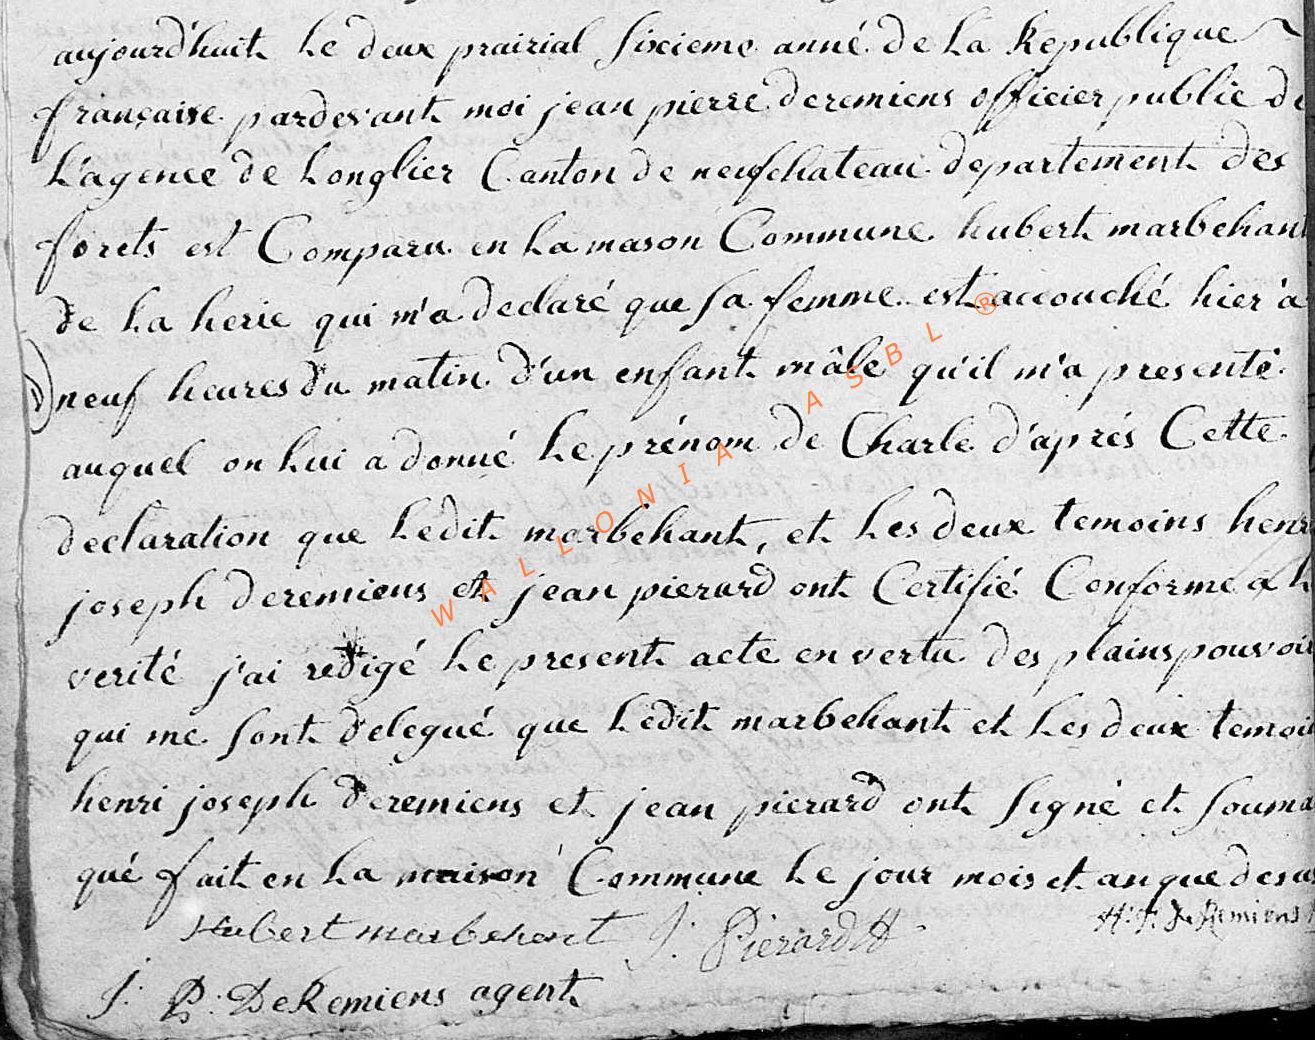 aujourd'huit le deux prairial sixieme anné de la Republique
française pardevant moi jean pierre deremiens officier public de
l'agence de Longlier Canton de neufchateau departement des
forets est Comparu en la mason Commune hubert marbehant
de la herie qui m'a declaré que sa femme est accouché hier à
neuf heures du matin d'un enfant mâle qu'il m'a presenté
auquel on lui a donné le prénom de Charle d'aprés Cette
declaration que ledit marbehant, et les deux temoins henri
joseph deremiens et jean pierard ont Certifié Conforme a la
verité j'ai redigé le present acte en vertu des plains pouvoir
qui me sont delegué que ledit marbehant et les deux temoin
henri joseph deremiens et jean pierard ont signé et souma
qué fait en la maison Commune le jour mois et an que desus
Hubert marbehant J: Pierard H: J: deRemiens
J: P: DeRemiens agent
WALLONIA ASBL ®